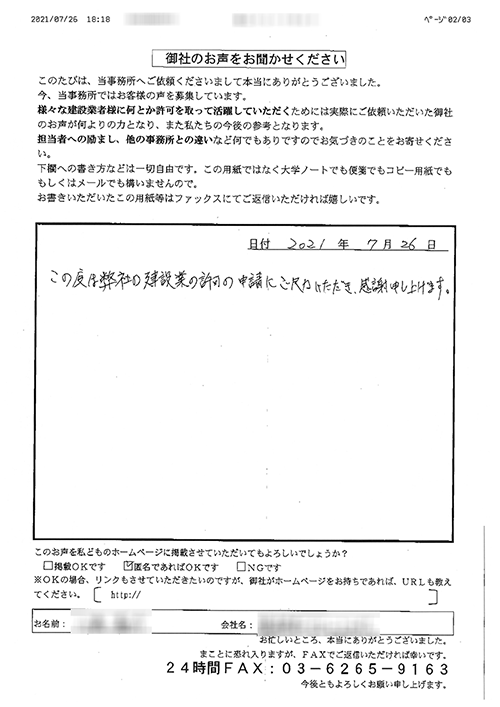 2021/07/26 18:18 ﾍﾟｰｼﾞ02/03
御社のお声をお聞かせください
このたびは、当事務所へご依頼くださいまして本当にありがとうございました。
今、当事務所ではお客様の声を募集しています。
様々な建設業者様に何とか許可を取って活躍していただくためには実際にご依頼いただいた御社
のお声が何よりの力となり、また私たちの今後の参考となります。
担当者への励まし、他の事務所との違いなど何でもありですのでお気づきのことをお寄せくださ
い。
下欄への書き方などは一切自由です。この用紙ではなく大学ノートでも便箋でもコピー用紙でも
もしくはメールでも構いませんので。
お書きいただいたこの用紙等はファックスにてご返信いただければ嬉しいです。
日付 2021 年 7月 26 日
この度は弊社の建設業の許可の申請にご尽力いただき、感謝申し上げます。
このお声を私どものホームページに掲載させていただいてもよろしいでしょうか?
□掲載OKです ☑匿名であればOKです □NGです
※OKの場合、リンクもさせていただきたいのですが、御社がホームページをお持ちであれば、URLも教え
てください。 [ http:// ]
お名前: 会社名:
お忙しいところ、本当にありがとうございました。
まことに恐れ入りますが、FAXでご返信いただければ幸いです。
24時間FAX:03-6265-9163
今後ともよろしくお願い申し上げます。